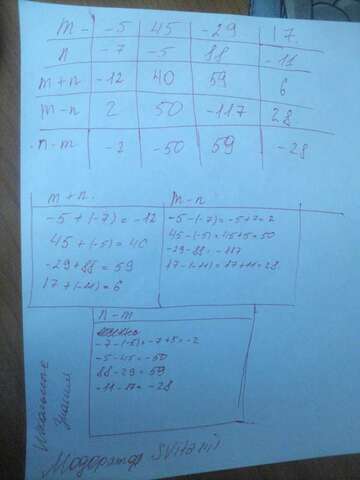 m - -5 45 -29 17
n -7 -5 88 -11
m+n -12 40 59 6
m-n 2 50 -117 28
n-m -2 -50 59 -28
m+n
-5+(-7)=-12
45+(-5)=40
-29+88=59
17+(-11)=6
m-n
-5-(-7)=-5+7=2
45-(-5)=45+5=50
-29-88=-117
17-(-11)=17+11=28
n-m
-7-(-5)=-7+5=-2
-5-45=-50
88-29=59
-11-17=-28
Школьные
Знания
Модератор SVitaNiI